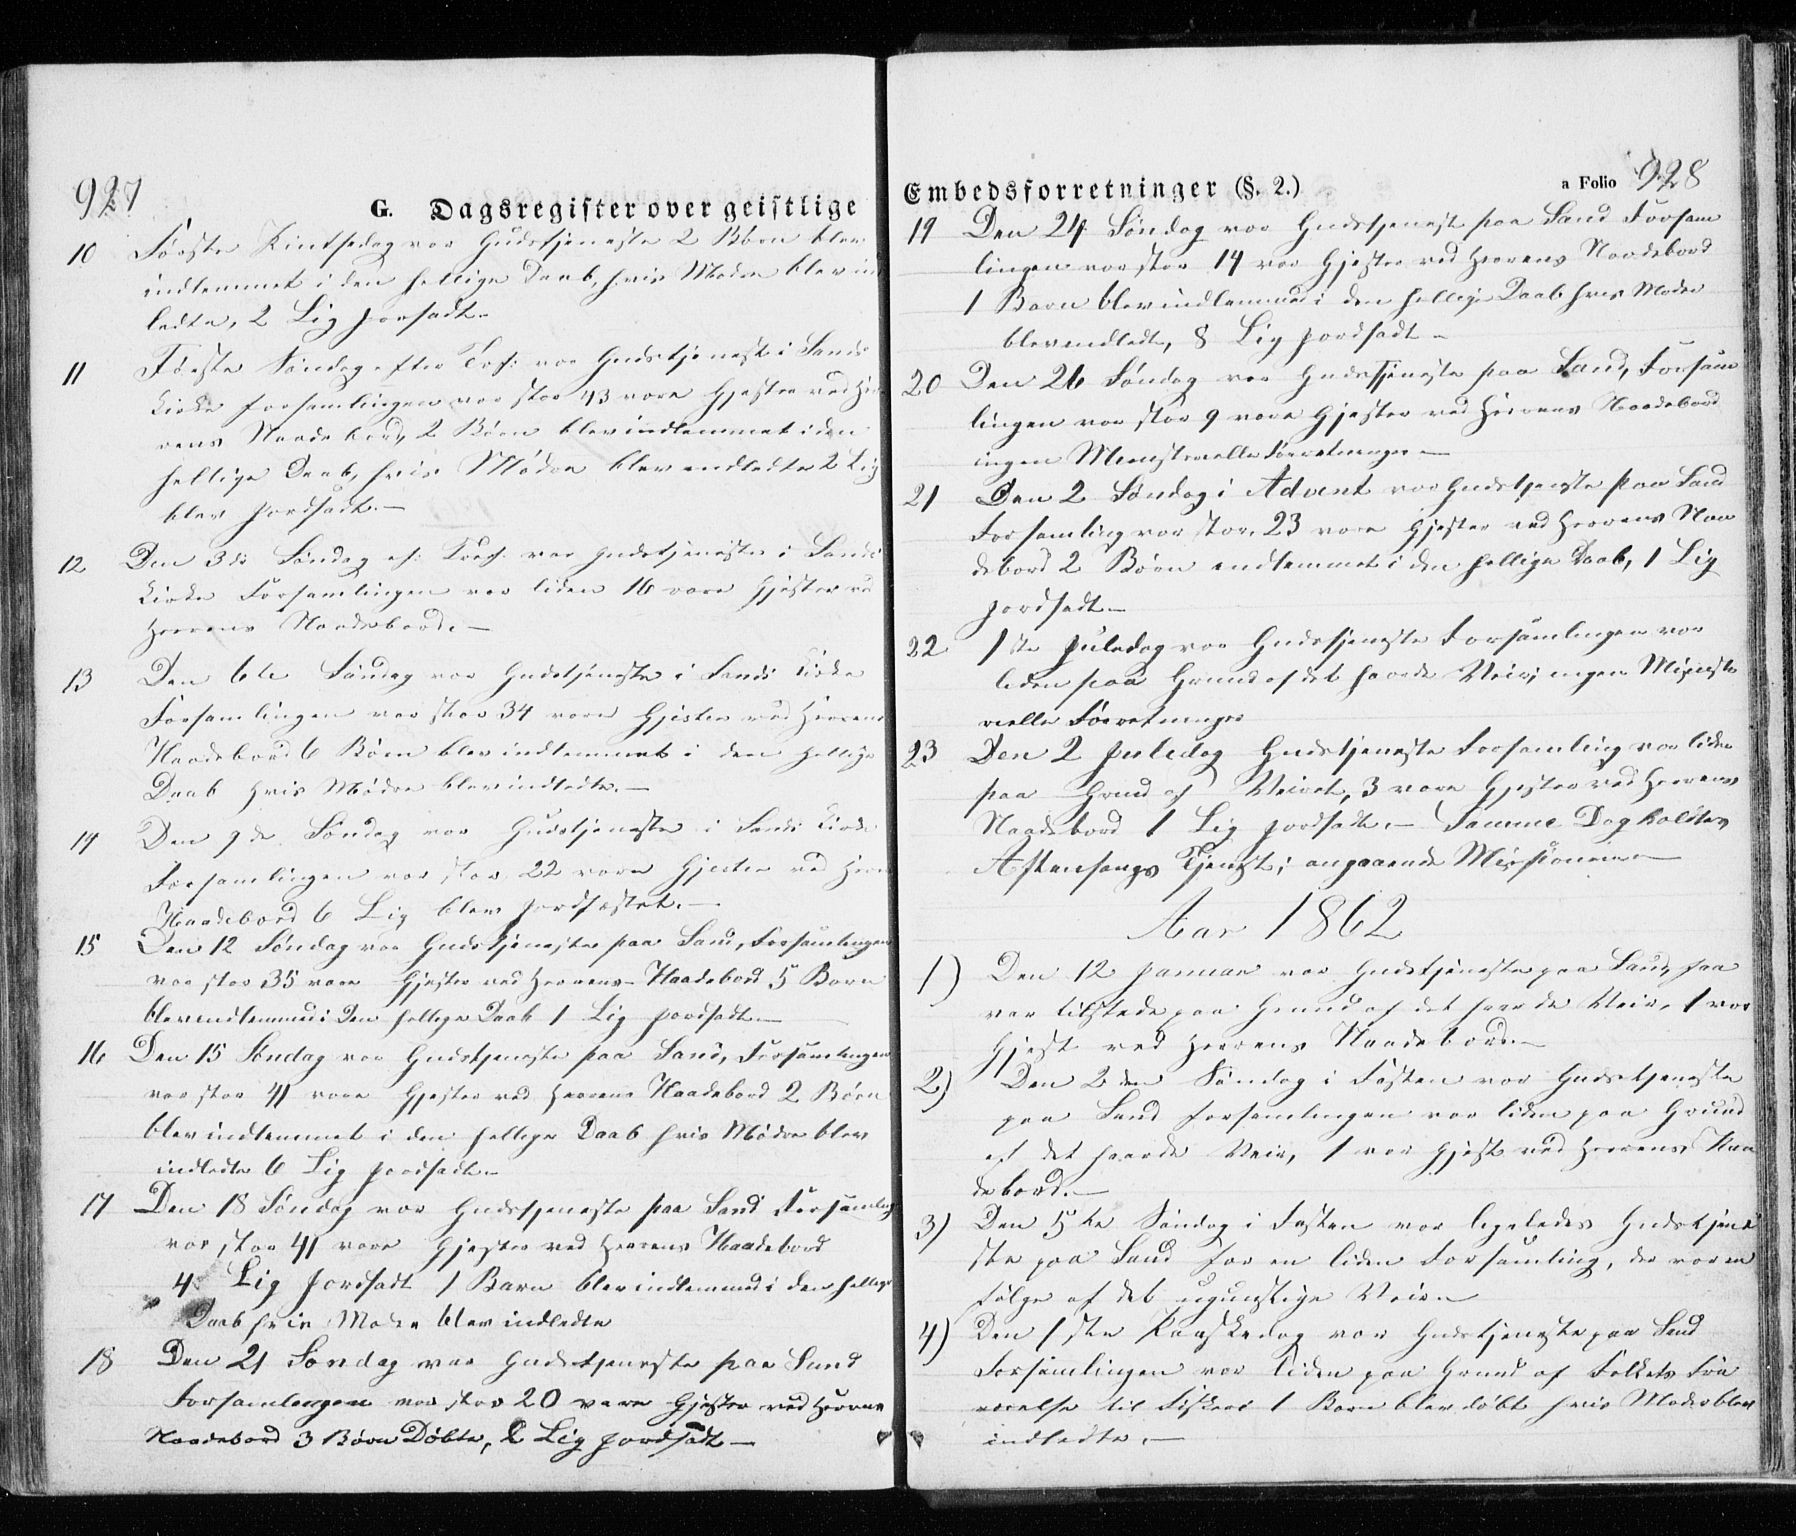 927
G. Dagsregister over geistlige
10 Første Pintsedag var Gudstjeneste 2 Børn blev
indlemmet i den hellige Daab, hvis Mødre blev ind
ledte, 2 Lig jordsadt.
11 Første Søndag efter Tref: var Gudstjeneste i Sands
Kirke forsamlingen var stor 43 vare Gjester ved Her
rens Naadebord, 2 Børn blev indlemmet i den
hellige Daab, hvis Mødre blev indledte 2 Lig
blev jordsadt.—
12 Den 3de Søndag ef: Tref: var Gudstjeneste i Sands
Kirke Forsamlingen var liden 16 vare Gjester ved
Herrens Naadebord.—
13 Den 6te Søndag var Gudstjeneste i Sands Kirke
Forsamlingen var stor 34 vare Gjester ved Herrens
Naadebord 6 Børn blev indlemmet i den hellige
Daab hvis Mødre blev indledte.—
14 Den 9de Søndag var Gudstjeneste i Sands Kirke
Forsamlingen var stor 22 vare Gjester ved Herre
Naadebord 6 Lig blev jordfæstet.—
15 Den 12 Søndag var Gudstjeneste paa Sand, Forsamlingen
var stor 35 vare Gjester ved Herrens Naadebord 5 Børn
blev indlemmed i Den hellige Daab 1 Lig jordsadt.—
16 Den 15 Søndag var Gudstjeneste paa Sand, Forsamlingen
var stor 41 vare Gjester ved Herrens Naadebord 2 Børn
blev indlemmet i den hellige Daab hvis Mødre blev
indledte 6 Lig jordsadt.—
17 Den 18 Søndag var Gudstjeneste paa Sand Forsamling
var stor 41 vare Gjester ved Herrens Naadebord
4 Lig jordsadt 1 Barn blev indlemmed i den hellige
Daab hvis Moder blev indledte
18 Den 21 Søndag var Gudstjeneste paa Sand
Forsamlingen var stor 20 vare Gjester ved Herrens
Naadebord 3 Børn Døbte, 2 Lig jordsadt—
Embedsforretninger (§. 2.)
a Folio 928
19 Den 24 Søndag var Gudstjenest paa Sand Forsam
lingen var stor 14 var Gjester ved Herrens Naadebord
1 Barn blev indlemmed i den hellige Daab hvis Moder
blev indledt, 8 Lig jordsadt—
20 Den 26 Søndag var Gudstjeneste paa Sand, Forsam
lingen var stor 9 vare Gjester ved Herrens Naadebord
ingen Ministerielle Forretninger—
21 Den 2 Søndag i Advent var Gudstjeneste paa Sand
Forsamling var stor, 23 vare Gjester ved Herrens Naa
debord 2 Børn indlemmet i den hellige Daab, 1 Lig
jordsadt—
22 1ste Juledag var Gudstjeneste Forsamlingen var
liden paa Grund af det haarde Veir; ingen Ministe
rielle Forretninger
23 Den 2 Juledag Gudstjeneste Forsamling var liden
paa Grund af Veiret, 3 vare Gjester ved Herrens
Naadebord 1 Lig jordsadt.— Samme Dag holdtes
Aftensangs Tjenest; angaaende Missionen—
Aar 1862
1) Den 12 Januar var Gudstjeneste paa Sand, faa
var tilstede paa Grund af det haarde Veir, 1 var
Gjest ved Herrens Naadebord.—
2) Den 2den Søndag i Fasten var Gudstjeneste
paa Sand forsamlingen var liden paa Grund
af det haarde Veir, 1 var Gjest ved Herrens Naa
debord.—
3) Den 5te Søndag i Fasten var ligeledes Gudstjene
ste paa Sand for en liden Forsamling, der var en
følge af det ugunstige Veir.
4) Den 1ste Paaskedag var Gudstjeneste paa Sand
Forsamlingen var liden paa Grund af Folkets Fra
værelse til Fiskeri 1 Barn blev døbt hvis Moder blev
indledte.—